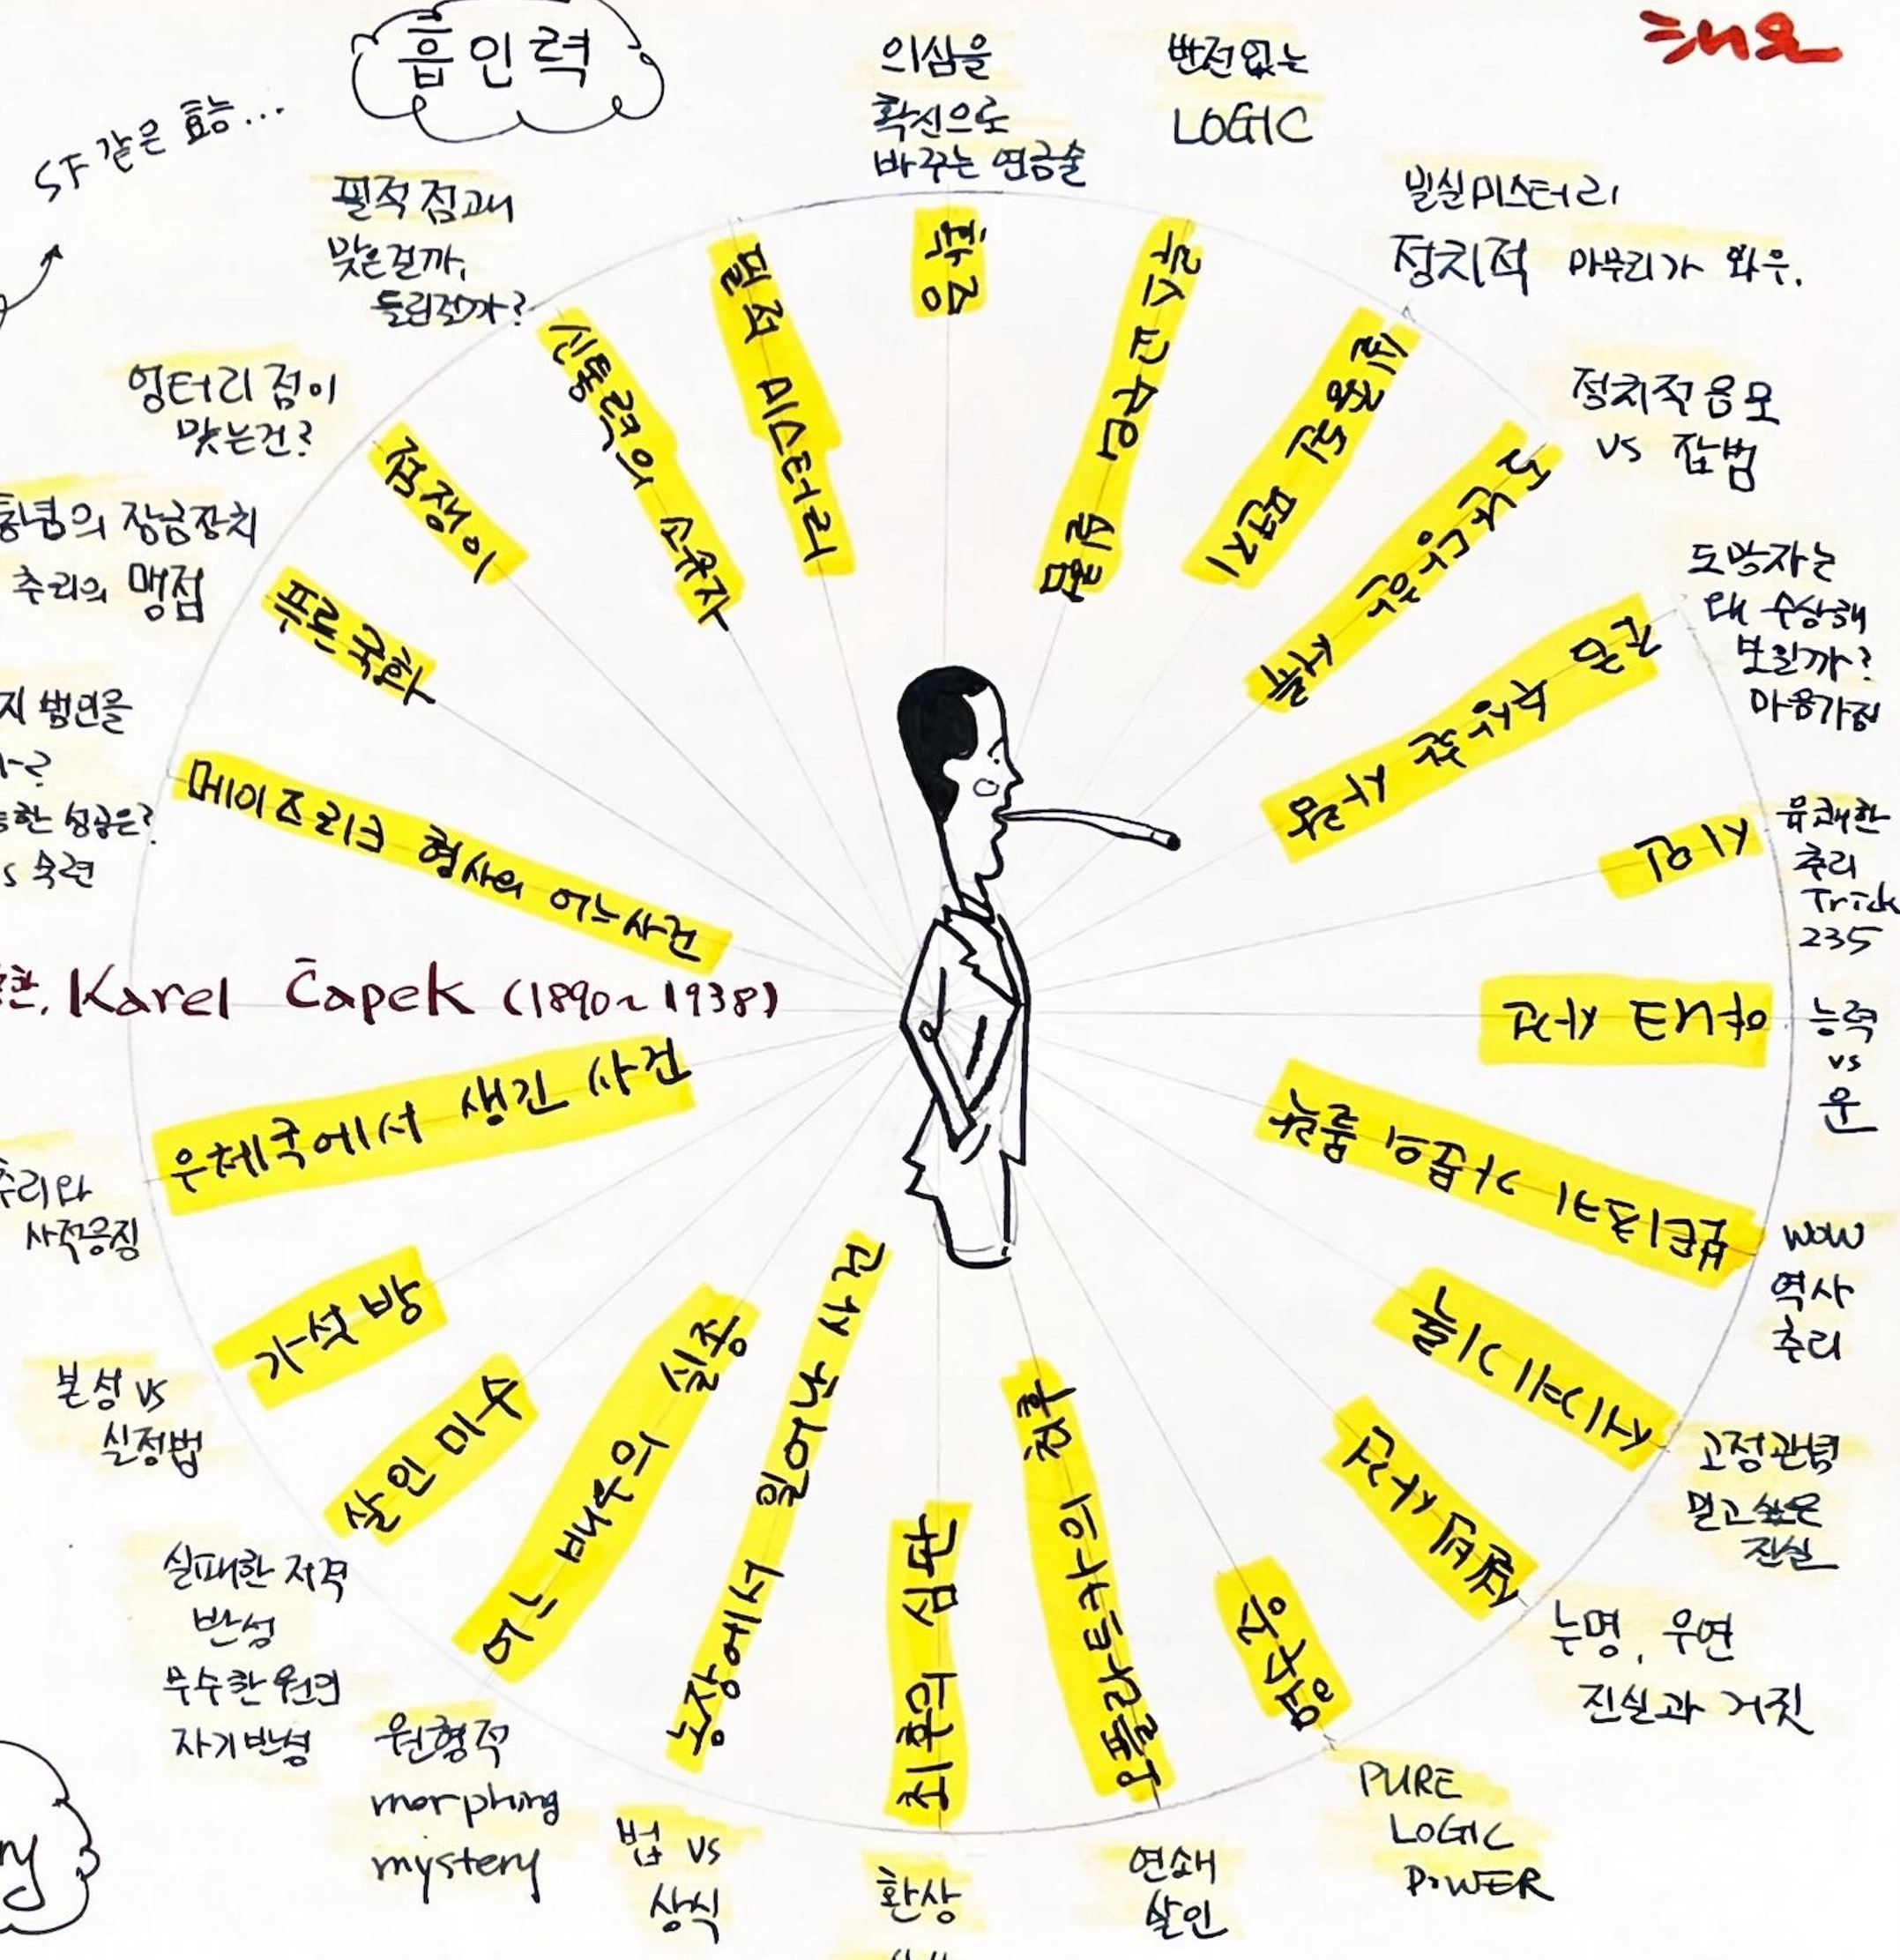 흡인력
SF 같은 효능...
의심을
확신으로
바꾸는 연금술
반전없는
LOGIC
밀실미스터리
정치적 마무리가 와우.
정치적음모
vs 잡범
도망자는
왜 수상해
보일까?
마음가짐
유쾌한
추리
Trick
235
능력
vs
운
WOW
역사
추리
고정관념
믿고싶은
진실
누명, 우연
진실과 거짓
PURE
LOGIC
POWER
연쇄
살인
환상
법 vs
상식
원형적
morphing
mystery
실패한 저격
반성
무수한 원인
자기반성
본성 vs
실정법
추리와
사적응징
Karel Čapek (1890~1938)
vs 숙련
통념의 잠금장치
추리의 맹점
엉터리 점이
맞는건?
필적 점괘
맞은걸까,
틀린걸까?
확증
루스 교수의 실험
시인
보티츠키 가문의 몰락
셀빈 사건
영수증
오플라트카의 최후
최후의 심판
농장에서 일어난 사건
어느 배우의 실종
살인 미수
가석방
우체국에서 생긴 사건
메이즈리크 형사의 어느사건
푸른국화
점쟁이
신통력의 소유자
필적 미스터리